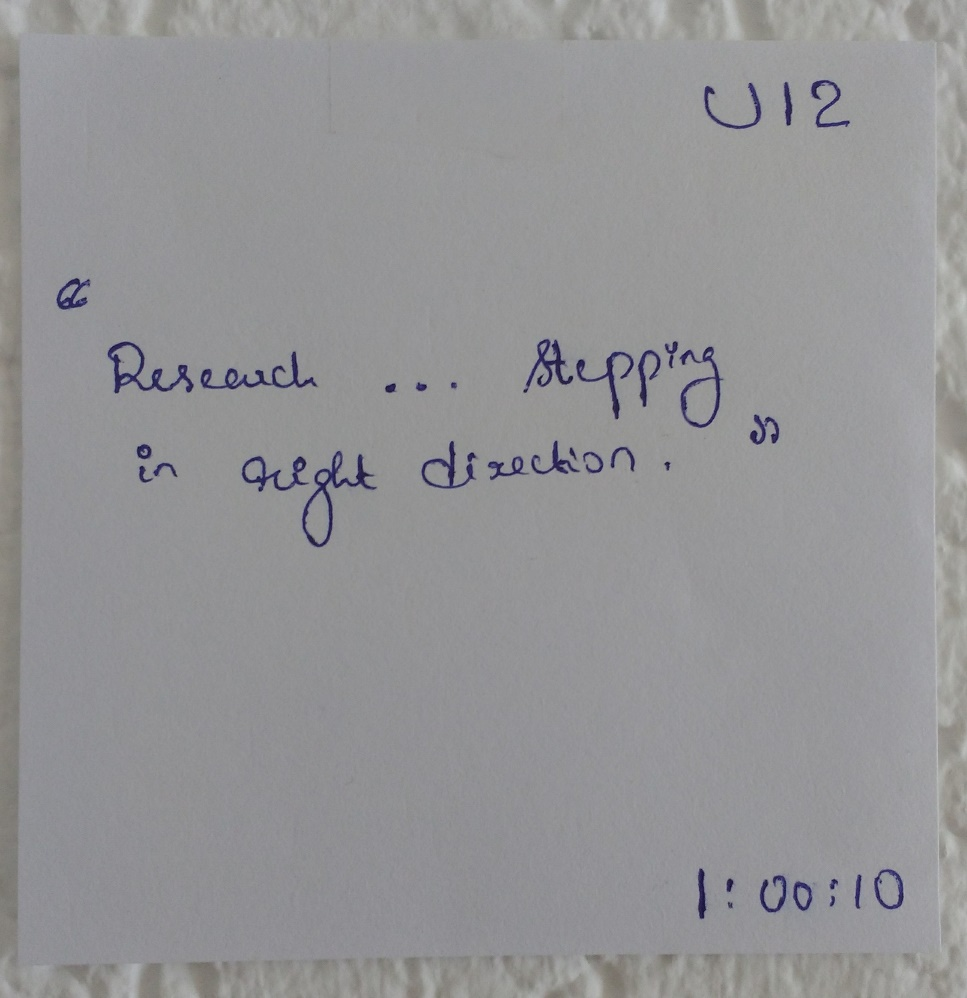 U12
“
Research ... Stepping
in right direction. ”
1:00:10